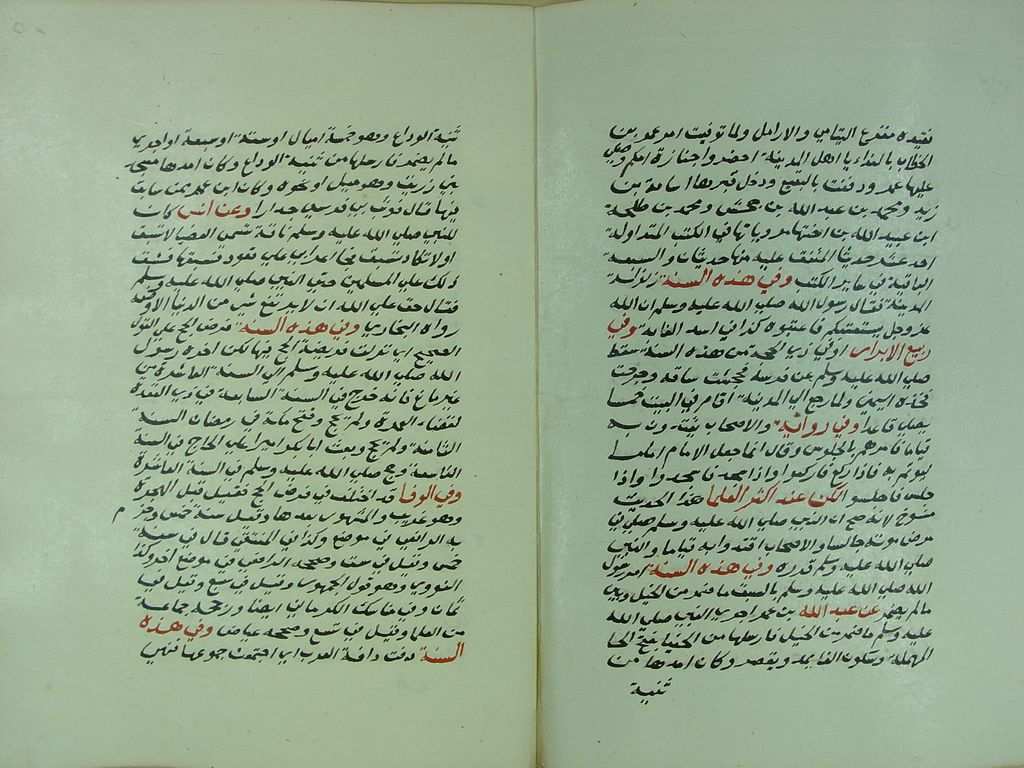 فقيده مفزع اليتامى والارامل ولما توفيت امر عمر بن
الخطاب بالنداء يا اهل المدينة احضروا جنازة امكم وصلى
عليها عمر ودفنت بالبقيع ودخل قبرها اسامة بن
زيد ومحمد بن عبد الله بن جحش ومحمد بن طلحة
ابن عبيد الله بن اختها مروياتها في الكتب المتداولة
احد عشر حديثا المتفق عليه منها حديثان والتسعة
الباقية في ساير الكتب وفي هذه السنة زلزلت
المدينة فقال رسول الله صلى الله عليه وسلم ان الله
عز وجل يستعتبكم فاعتبوه كذا في اسد الغابة وفي
ربيع الابرار او في ذي الحجة من هذه السنة سقط
صلى الله عليه وسلم عن فرسه فجحشت ساقه وجرحت
فخذه اليمنى ولما رجع الى المدينة اقام في البيت خمسا
يصلي قاعدا وفي رواية والاصحاب
قياما فامرهم بالجلوس وقال انما جعل الامام اماما
ليوتم به فاذا ركع فاركعوا واذا سجد فاسجدوا واذا
جلس فاجلسوا لكن عند اكثر العلما هذا الحديث
منسوخ لانه صح ان النبي صلى الله عليه وسلم صلى في
مرض موته جالسا والاصحاب اقتدوا به قياما والنبي
صلى الله عليه وسلم قرره وفي هذه السنة امر رسول
الله صلى الله عليه وسلم بالسبق ما ضمر من الخيل وبين
مالم يضمر عن عبد الله بن عمر اجرى النبي صلى الله
عليه وسلم ما ضمر من الخيل فارسلها من الحفيا بفتح الحا
المهملة وسكون الفا يمد ويقصر وكان امدها من
ثنية
ثنية الوداع وهو خمسة اميال او ستة او سبعة او اجرى
مالم يضمر فارسلها من ثنية الوداع وكان امدها مسجد
بني زريق وهو ميل او نحوه وكان ابن عمر ممن سابق
فيها قال فوثب بي فرسي جدارا وعن انس كانت
للنبي صلى الله عليه وسلم ناقة تسمى العضبا لا تسبق
او لا تكاد تسبق فجا اعرابي على قعود فسبقها فشق
ذلك على المسلمين حتى النبي صلى الله عليه وسلم
فقال حق على الله ان لا يرتفع شي من الدنيا الا وضعه
رواه البخاري وفي هذه السنة فرض الحج على القول
الصحيح اي نزلت فريضة الحج فيها لكن اخره رسول
الله صلى الله عليه وسلم الى السنة العاشرة من
غير مانع فانه خرج في السنة السابعة في ذي القعدة
لقضاء العمرة ولم يحج وفتح مكة في رمضان السنة
الثامنة ولم يحج وبعث ابا بكر اميرا على الحاج في السنة
التاسعة وحج صلى الله عليه وسلم في السنة العاشرة
وفي الوفا قد اختلف في فرض الحج فقيل قبل الهجرة
وهو غريب والمشهور بعدها وقيل سنة خمس وجزم
به الرافعي في موضع وكذا في المنتقى قال في سنة
خمس وقيل في ست وصححه الرافعي في موضع اخر وكذا
النووي وهو قول الجمهور وقيل في سبع وقيل في
ثمان وفي مناسك الكرماني ايضا ورجحه جماعة
من العلما وقيل في تسع وصححه عياض وفي هذه
السنة دفت دافة العرب اي اجتمعت جموعها فنهى